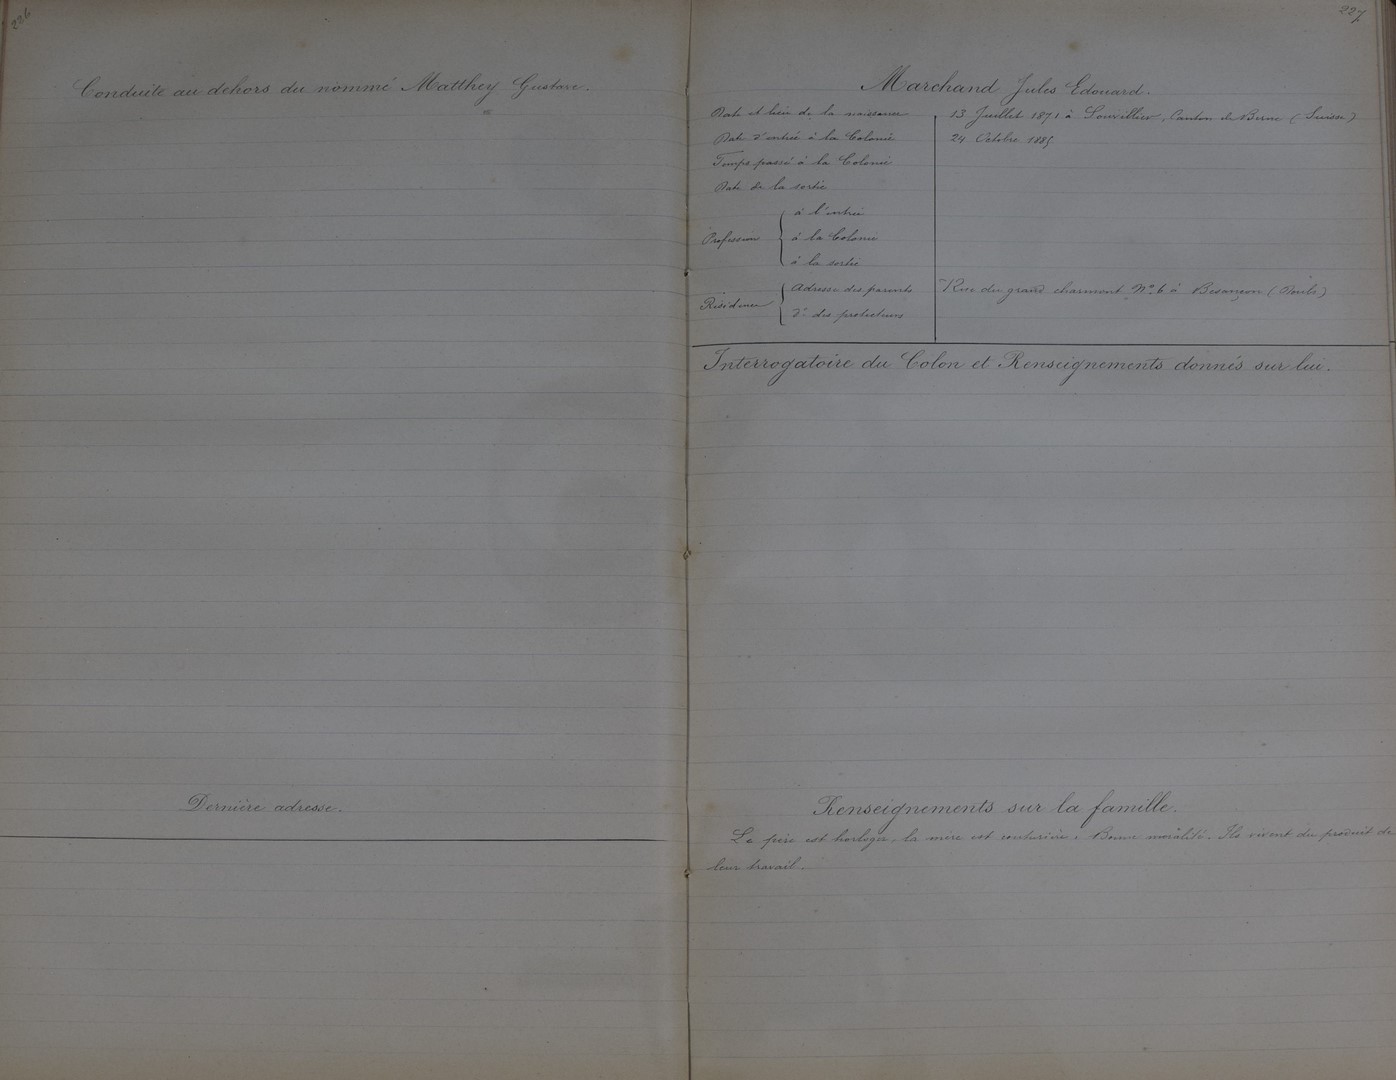 226
Conduite au dehors du nommé Matthey Gustave.
Dernière adresse.
227
Marchand Jules Edouard.
Date et lieu de la naissance 13 Juillet 1871 à Sonvillier, Canton de Berne (Suisse)
Date d'entrée à la Colonie 24 Octobre 1885
Temps passé à la Colonie
Date de la sortie
Profession
à l'entrée
à la Colonie
à la sortie
Résidence
Adresse des parents Rue du grand charmont N° 6 à Besançon (Doubs)
d° des protecteurs
Interrogatoire du Colon et Renseignements donnés sur lui.
Renseignements sur la famille.
Le père est horloger, la mère est couturière. Bonne moralité. Ils vivent du produit de
leur travail.